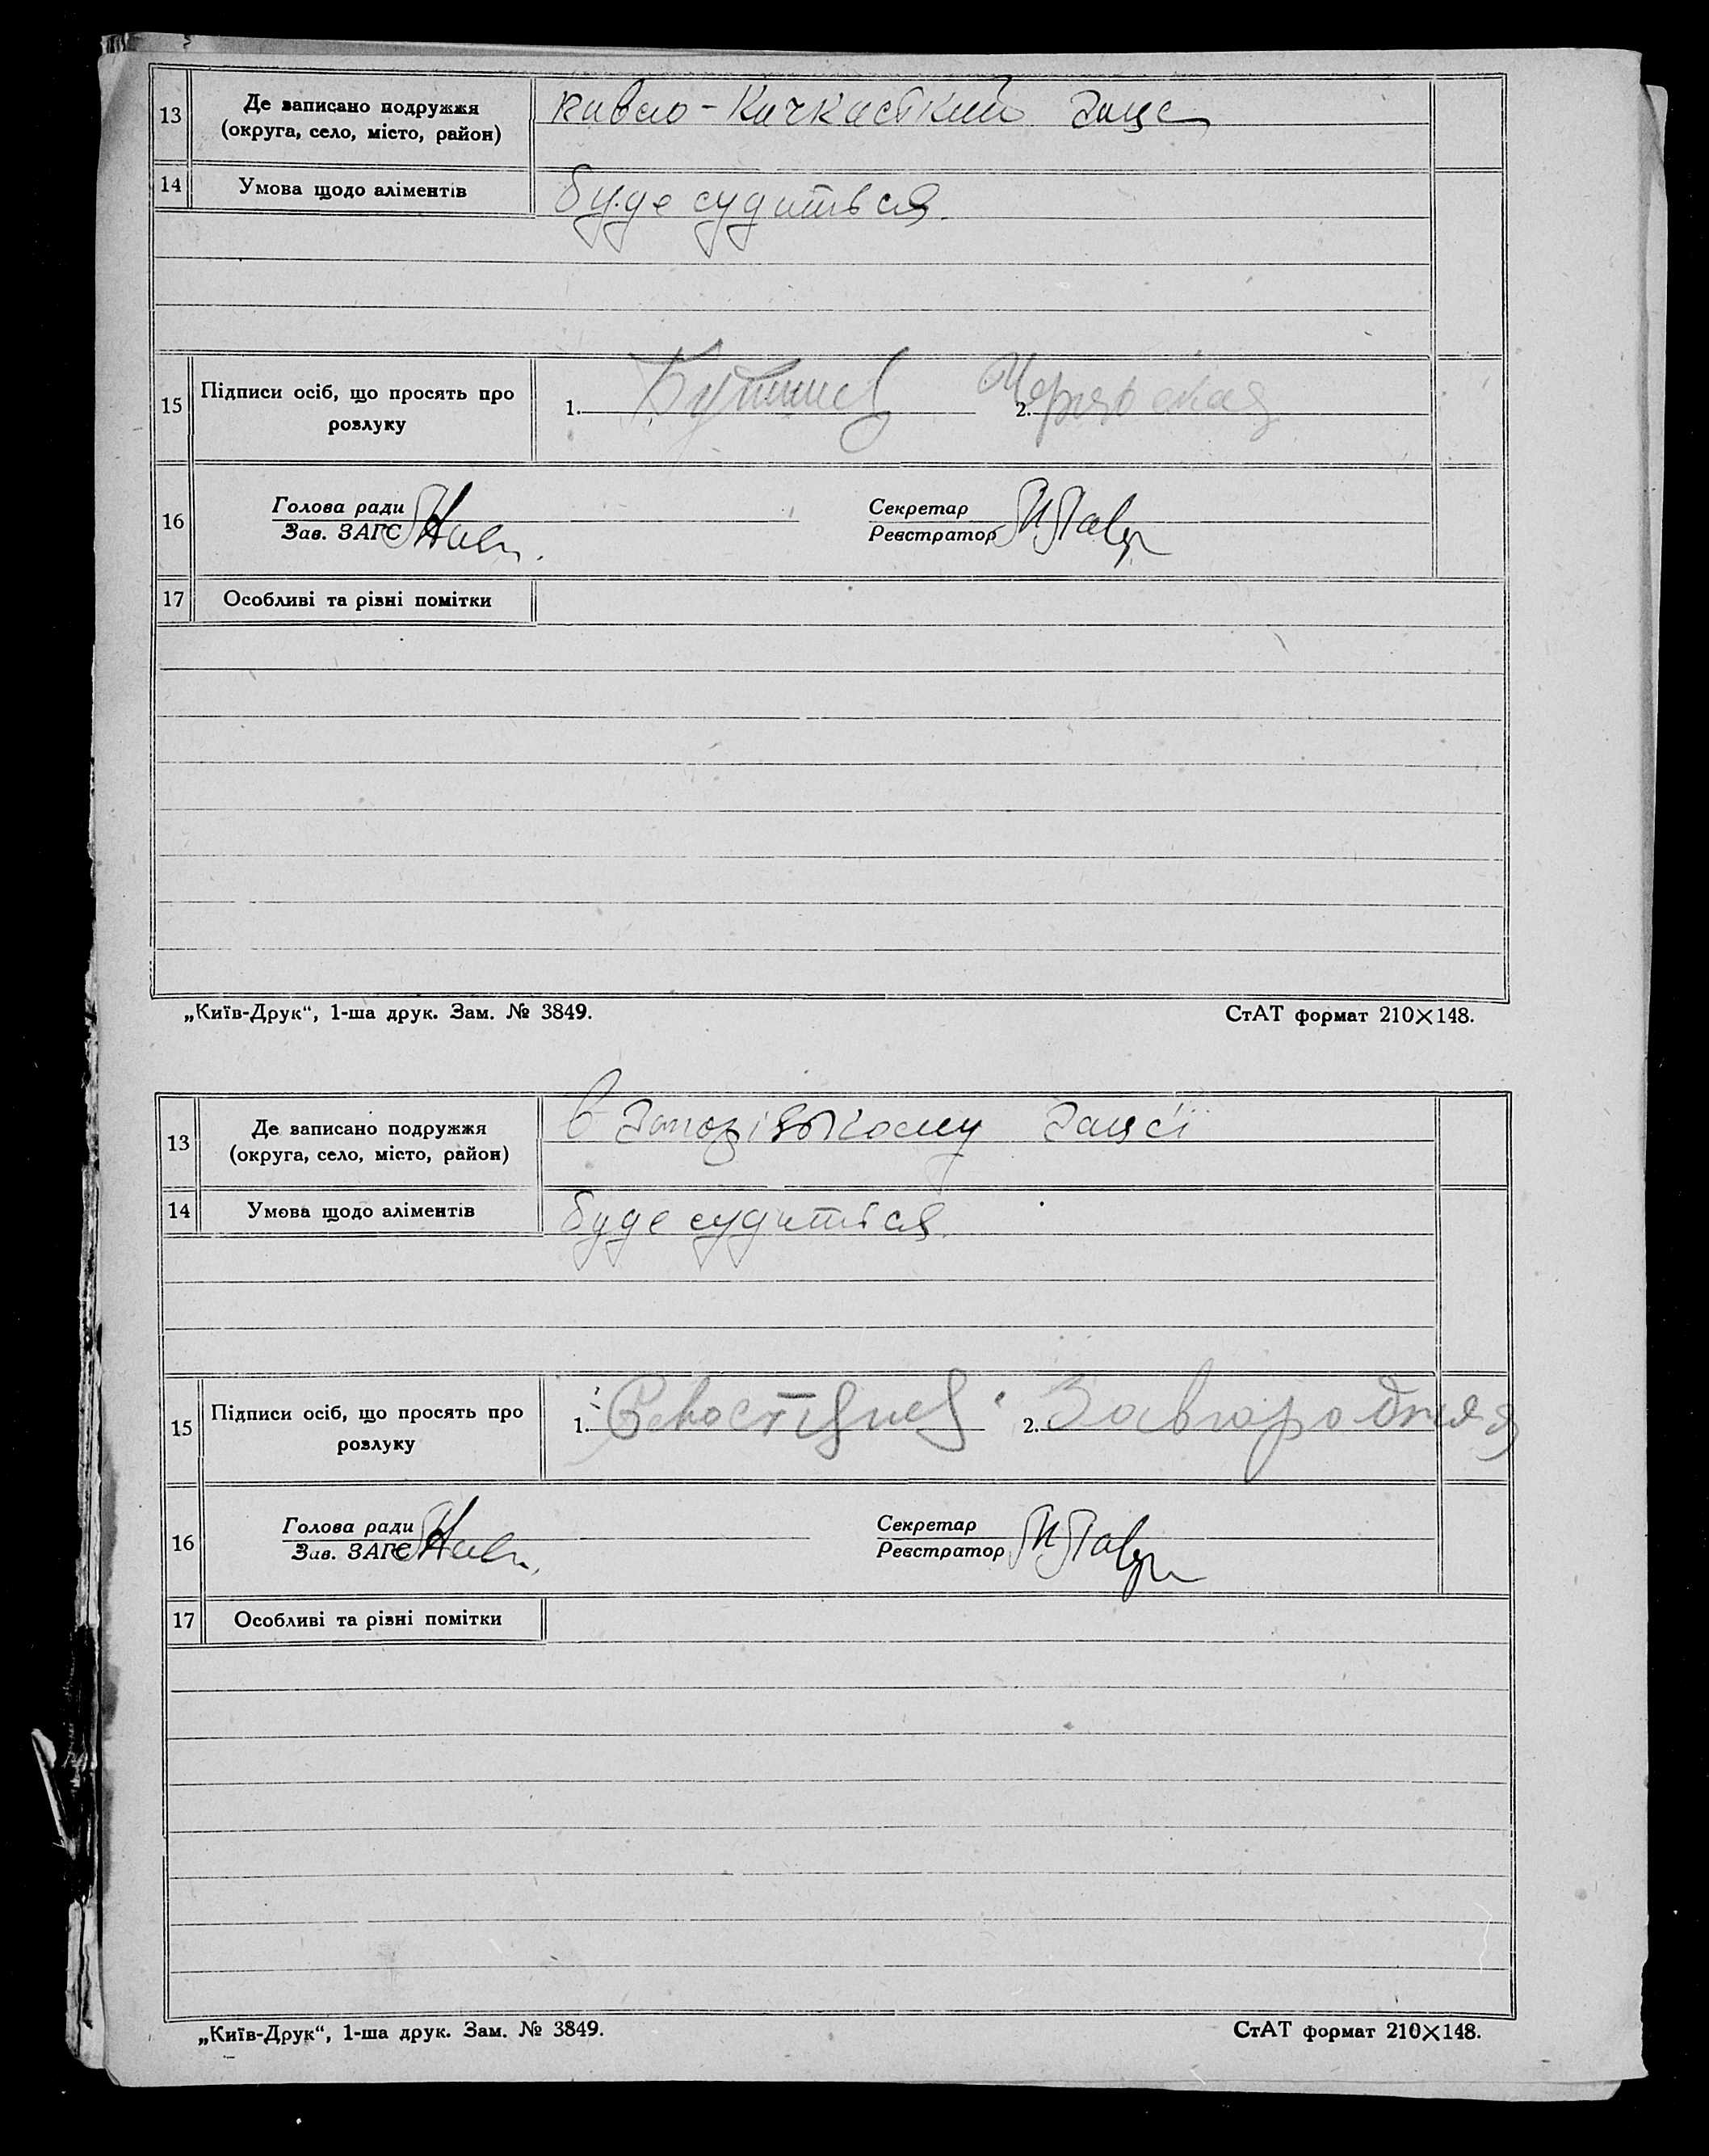 13
Де записано подружжя
(округа, село, місто, район)
Павло-Кичкаський Загс
14
Умова щодо аліментів
буде судиться.
15
Підписи осіб, що просять про
розлуку
1.
2.
16
Голова ради
Зав. ЗАГС
Секретар
Реєстратор
17
Особливі та різні помітки
„Київ-Друк“, 1-ша друк. Зам. № 3849.
СтАТ формат 210×148.
13
Де записано подружжя
(округа, село, місто, район)
в Запоріському Загсії
14
Умова щодо аліментів
буде судиться.
15
Підписи осіб, що просять про
розлуку
1.
2. Завгородняя
16
Голова ради
Зав. ЗАГС
Секретар
Реєстратор
17
Особливі та різні помітки
„Київ-Друк“, 1-ша друк. Зам. № 3849.
СтАТ формат 210×148.